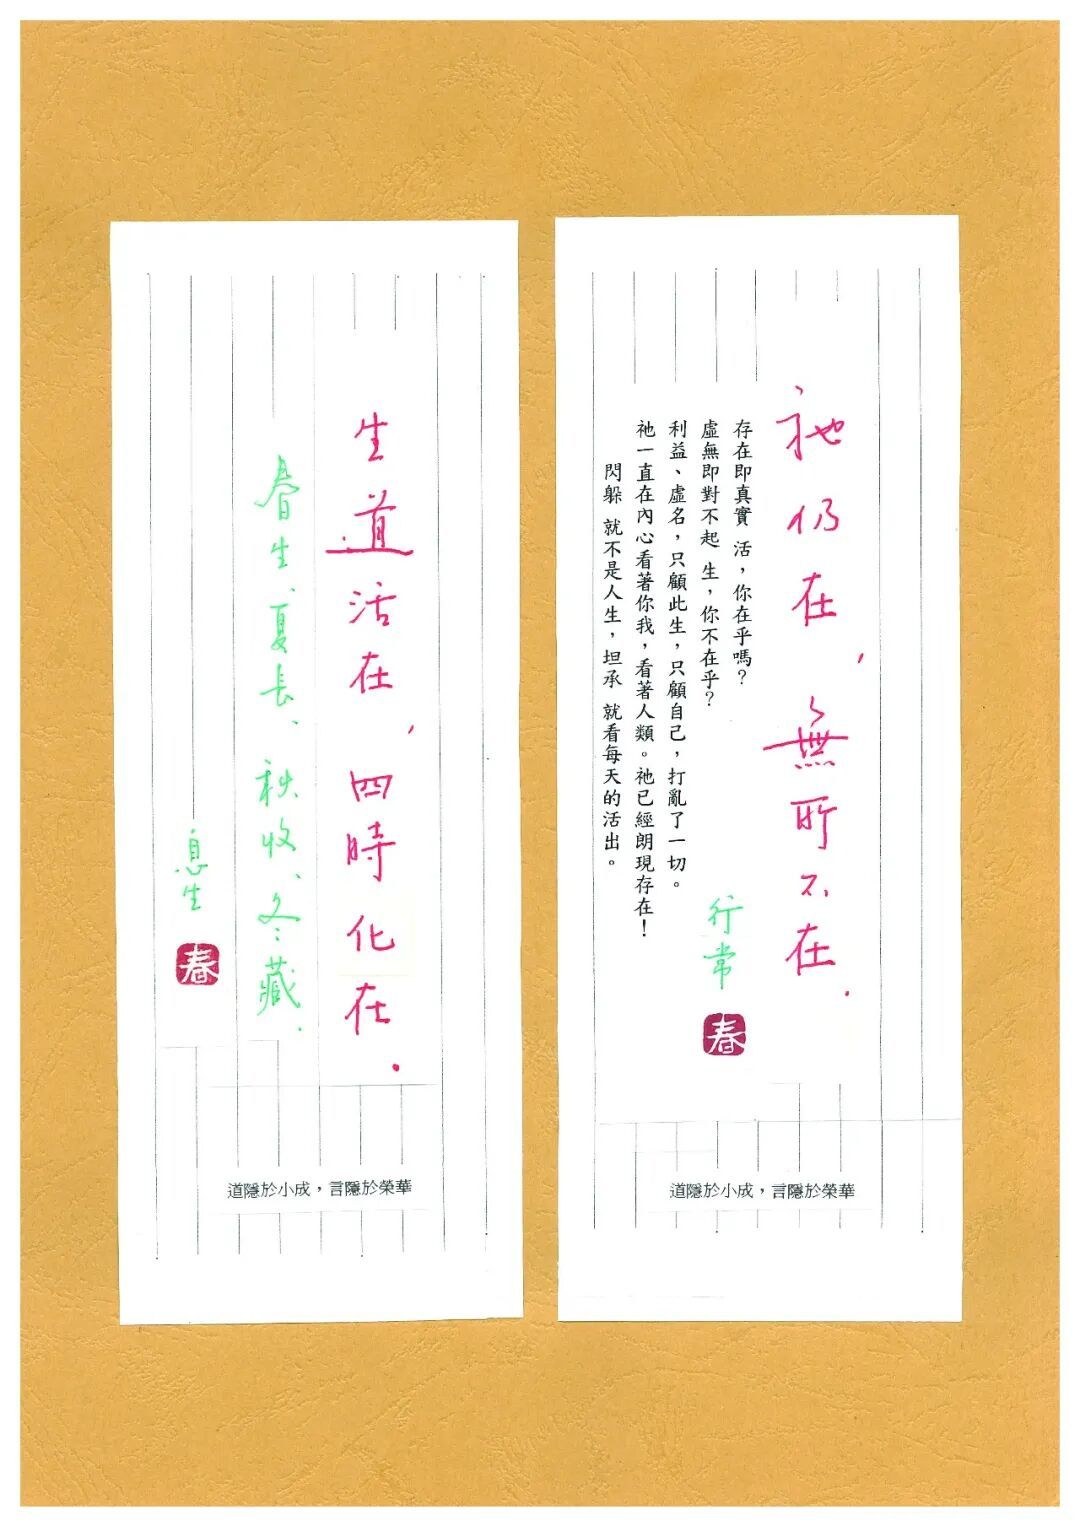 祂仍在，無所不在.
存在即真實 活，你在乎嗎？
虛無即對不起 生，你不在乎？
利益、虛名，只顧此生，只顧自己，打亂了一切。
祂一直在內心看著你我，看著人類。祂已經朗現存在！
閃躲 就不是人生，坦承 就看每天的活出。
行常
春
道隱於小成，言隱於榮華
生道活在，四時化在.
春生、夏長、秋收、冬藏.
息生
春
道隱於小成，言隱於榮華